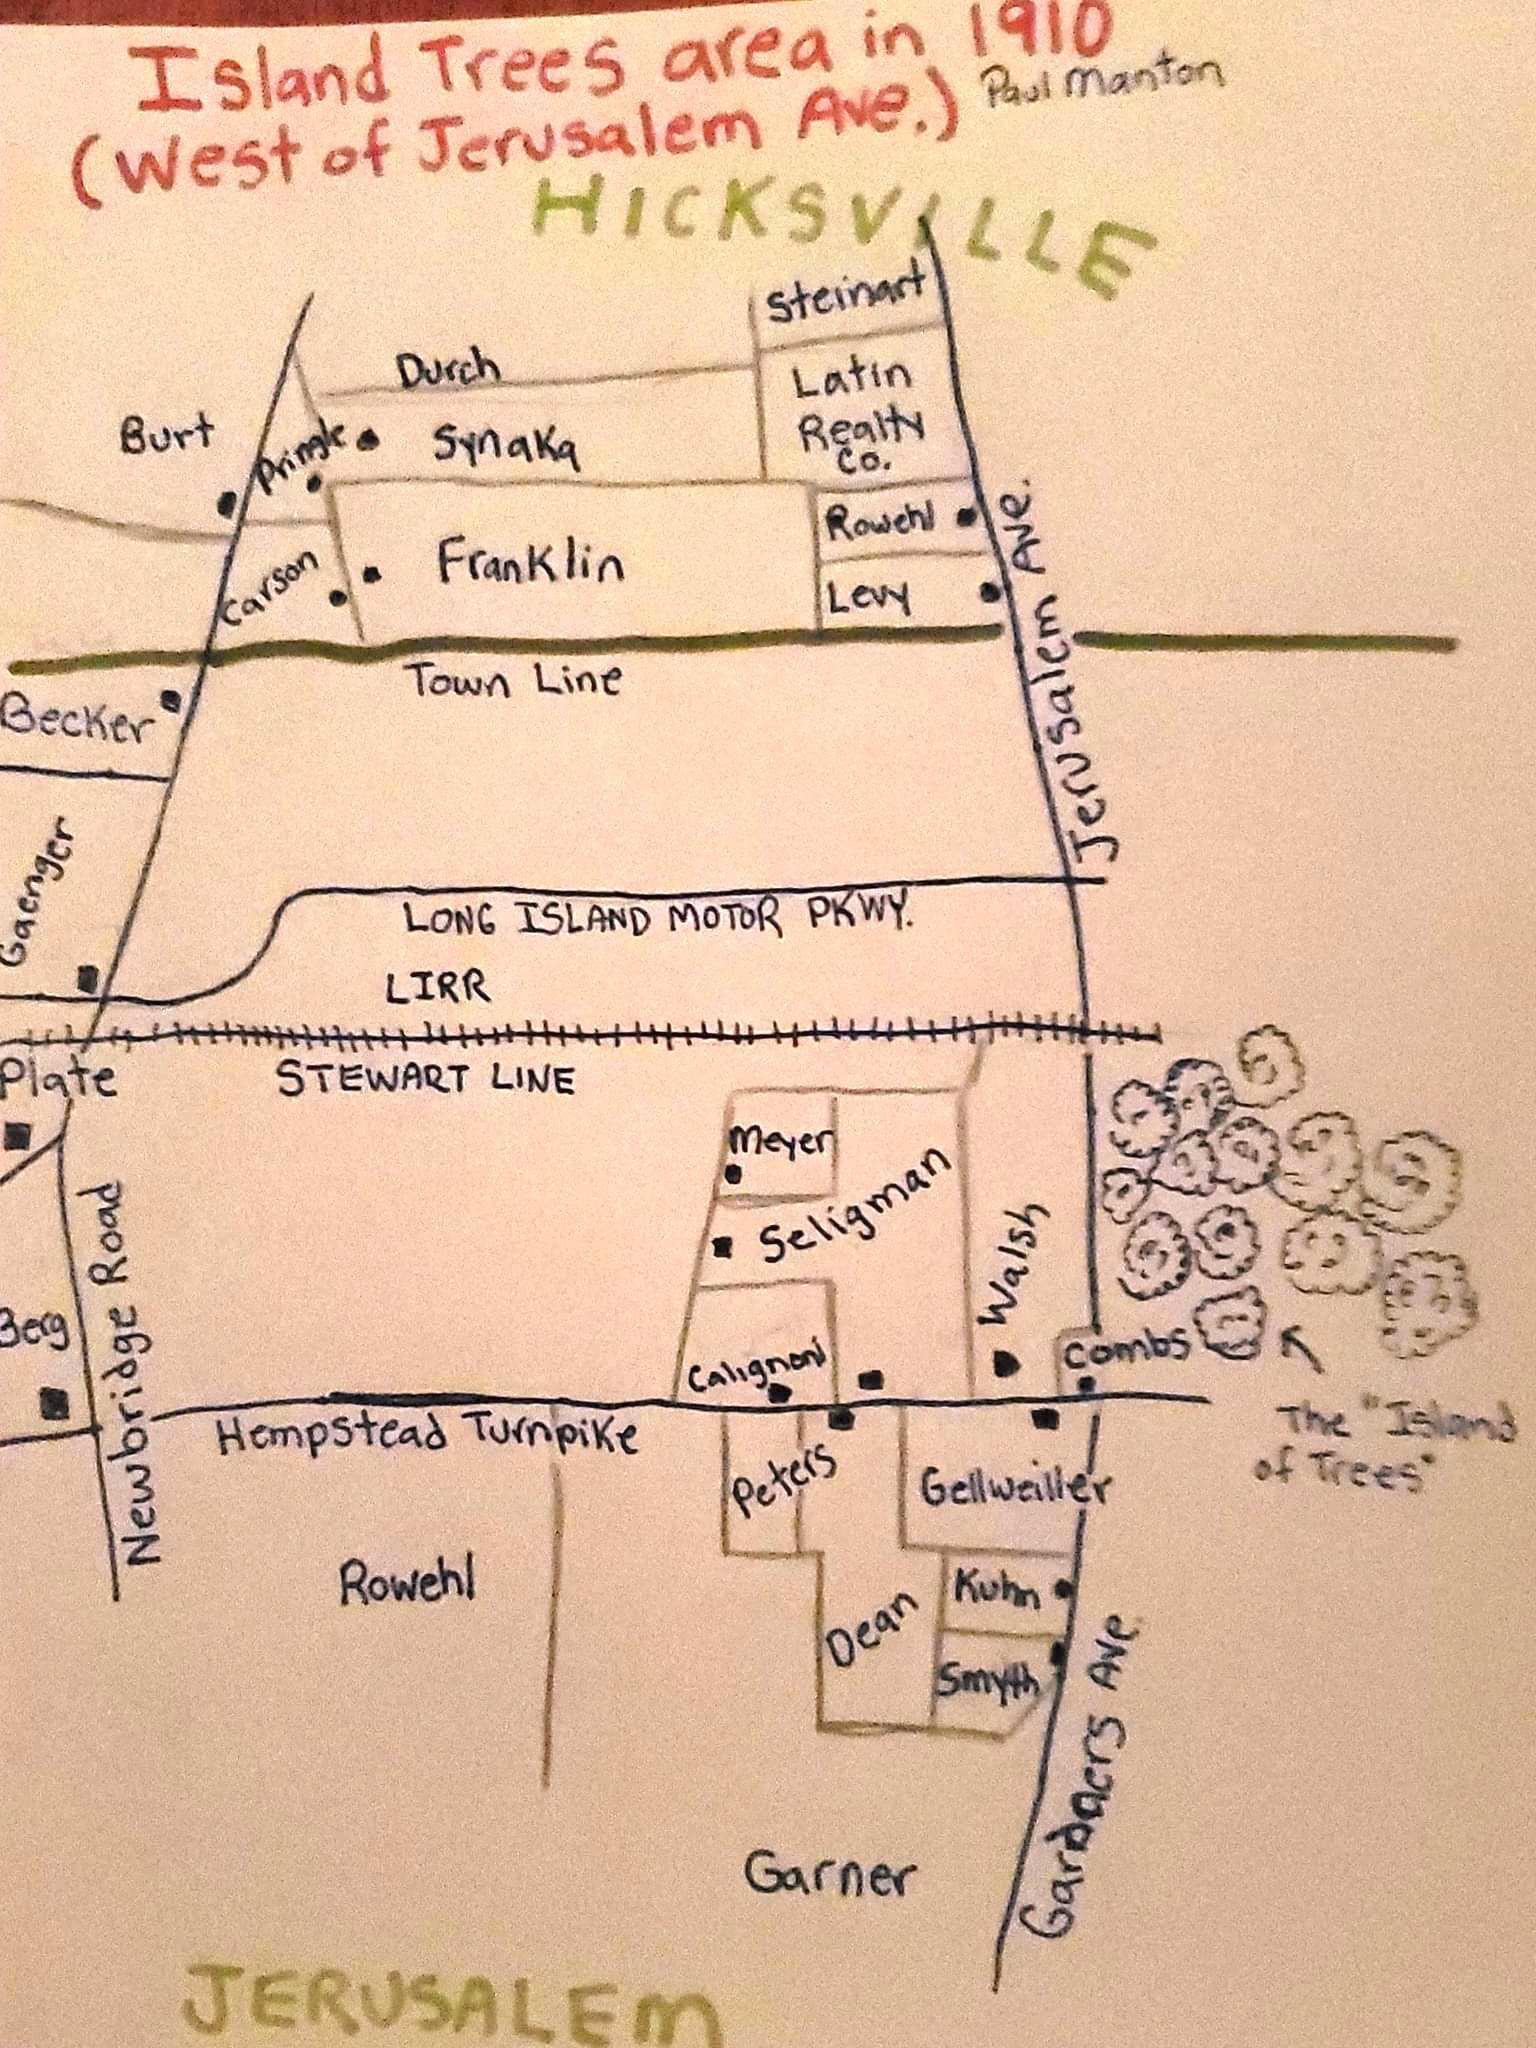 Island Trees area in 1910
Paul Manton
(West of Jerusalem Ave.)
HICKSVILLE
Steinart
Durch
Latin
Realty
Co.
Burt
Pringle
Synaka
Rowehl
Carson
Franklin
Levy
Jerusalem Ave.
Town Line
Becker
Gaenger
LONG ISLAND MOTOR PKWY.
LIRR
Plate
STEWART LINE
Meyer
Seligman
Walsh
Newbridge Road
Berg
Calignoni
Combs
The "Island
of Trees"
Hempstead Turnpike
Peters
Gellweiller
Rowehl
Kuhn
Dean
Smyth
Gardners Ave.
Garner
JERUSALEM